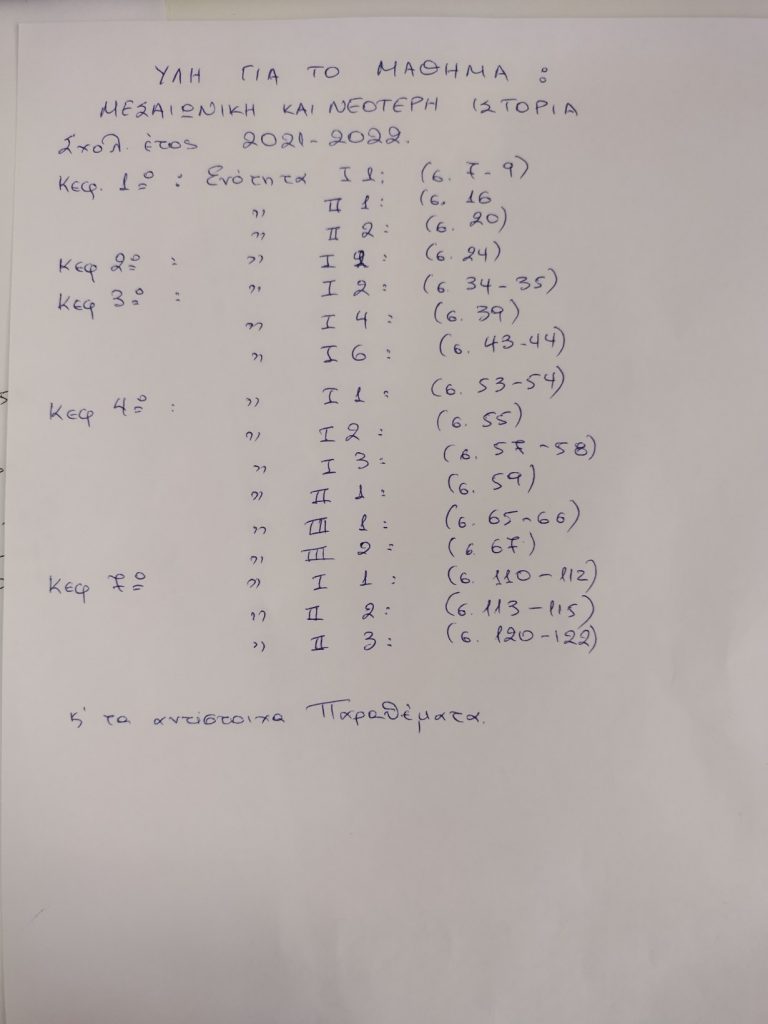 ΥΛΗ ΓΙΑ ΤΟ ΜΑΘΗΜΑ :
ΜΕΣΑΙΩΝΙΚΗ ΚΑΙ ΝΕΟΤΕΡΗ ΙΣΤΟΡΙΑ
Σχολ. έτος 2021-2022.
Κεφ. 1ο : Ενότητα Ι 1: (σ. 7-9)
" ΙΙ 1: (σ. 16
" ΙΙ 2: (σ. 20)
Κεφ 2ο : " Ι 2: (σ. 24)
Κεφ 3ο : " Ι 2: (σ. 34-35)
" Ι 4: (σ. 39)
" Ι 6: (σ. 43-44)
Κεφ 4ο : " Ι 1: (σ. 53-54)
" Ι 2: (σ. 55)
" Ι 3: (σ. 57-58)
" ΙΙ 1: (σ. 59)
" ΙΙΙ 1: (σ. 65-66)
" ΙΙΙ 2: (σ. 67)
Κεφ 7ο " Ι 1: (σ. 110-112)
" ΙΙ 2: (σ. 113-115)
" ΙΙ 3: (σ. 120-122)
κ' τα αντίστοιχα Παραθέματα.